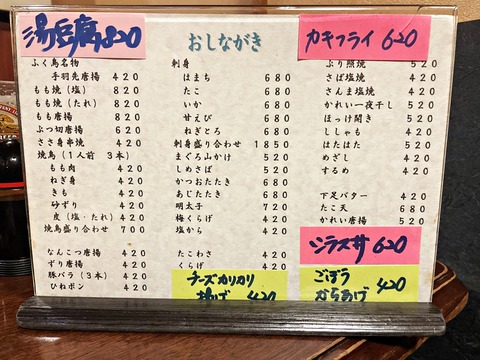 湯豆腐 820
おしながき
カキフライ 620
ふく鳥名物
手羽先唐揚 420
もも焼(塩) 820
もも焼(たれ) 820
もも唐揚 820
ぶつ切唐揚 620
ささ身串焼 420
焼鳥(1人前 3本)
もも肉 420
ねぎ身 420
きも 420
砂ずり 420
皮(塩・たれ) 420
焼鳥盛り合わせ 700
なんこつ唐揚 420
ずり唐揚 420
豚バラ(3本) 420
ひねポン 420
刺身
はまち 680
たこ 680
いか 680
甘えび 680
ねぎとろ 680
刺身盛り合わせ 1850
まぐろ山かけ 520
しめさば 520
かつおたたき 680
あじたたき 680
明太子 720
梅くらげ 420
塩から 420
たこわさ 420
くらげ 420
チーズカリカリ
揚げ 420
ぶり照焼 420
さば塩焼 420
さんま塩焼 420
かれい一夜干し 520
ほっけ開き 520
ししゃも 420
はたはた 520
めざし 420
するめ 420
下足バター 420
たこ天 680
かれい唐揚 520
シラス丼 620
ごぼう
からあげ 420